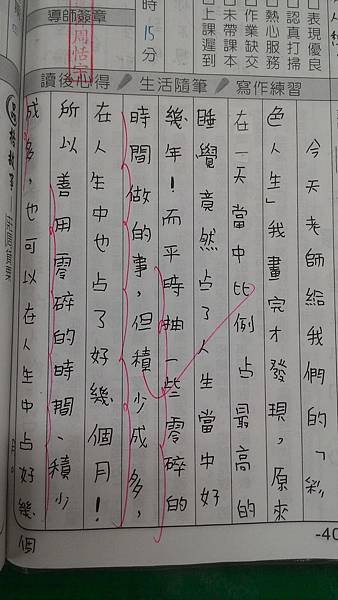 表現優良
認真打掃
熱心服務
作業缺交
未帶課本
上課遲到
時15分
導師簽章
周恬
讀後心得 生活隨筆 寫作練習
今天老師給我們的「彩
色人生」我畫完才發現，原來
在一天當中比例占最高的
睡覺竟然占了人生當中好
幾年！而平時抽一些零碎的
時間做的事，但積少成多，
在人生中也占了好幾個月！
所以善用零碎的時間、積少
成多，也可以在人生中占好幾個
月。
-40